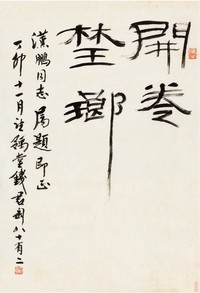 開卷
琳瑯
漢鵬同志屬題即正
丁卯十一月豫堂錢君匋八十有二